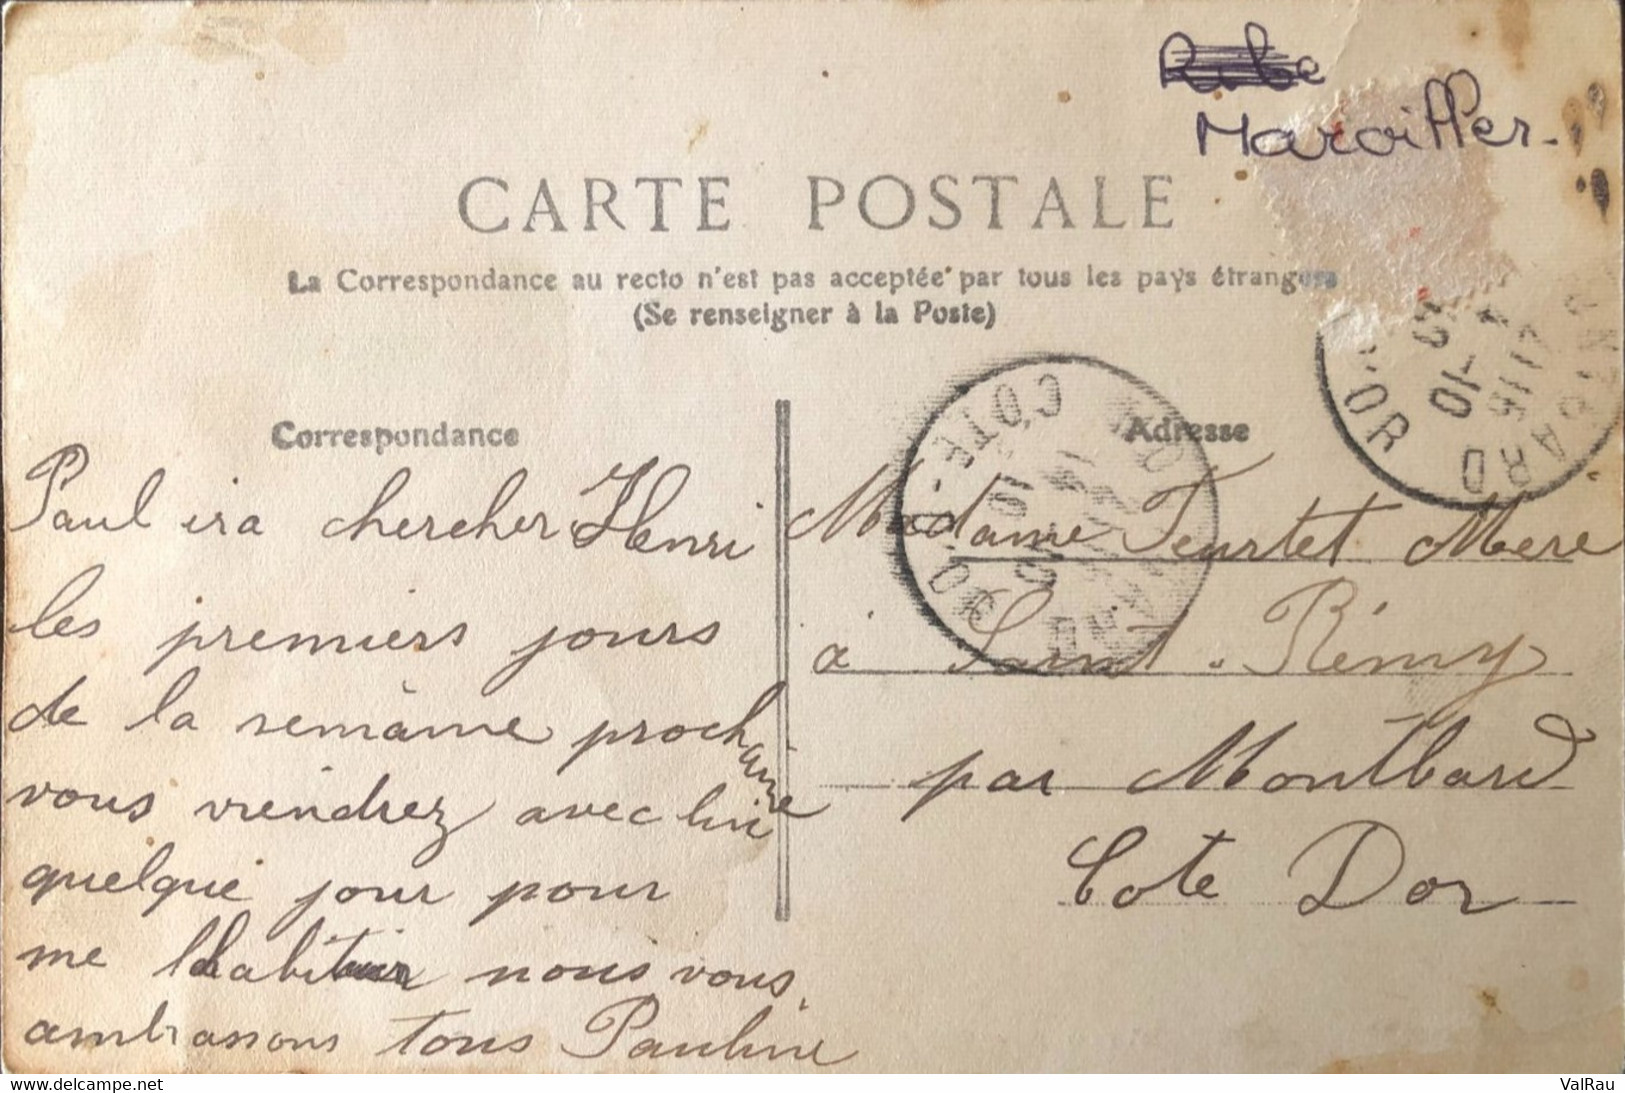 Maroiller.
CARTE POSTALE
La Correspondance au recto n'est pas acceptée par tous les pays étrangers
(Se renseigner à la Poste)
Correspondance
Paul ira chercher Henri
les premiers jours
de la semàine prochaine
vous viendrez avec lui
quelque jour pour
me
nous vous
ambrassons tous Pauline
Adresse
Madame Teurtet Mere
à Saint-Rémy
par Montbard
Cote Dor
CÔTE-D'OR
10
5-10
D'OR
delcampe.net
ValRau